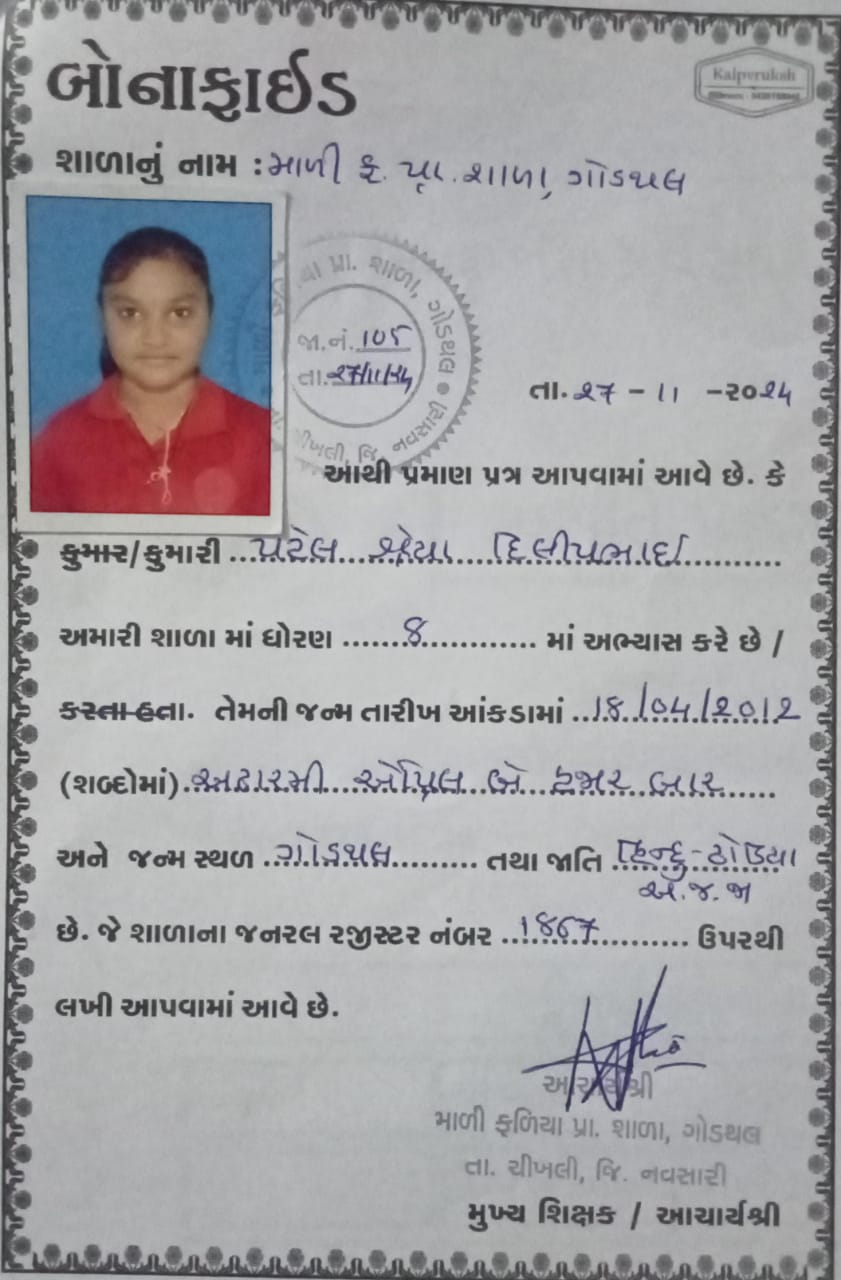 બોનાફાઈડ
Kalpvruksh
શાળાનું નામ : માળી ફ. પ્રા. શાળા, ગોડથલ
પ્રા. શાળા, ગોડથલ
જા.નં. 105
તા. ૨૭/11/૨૪
ચીખલી, જિ. નવસારી
તા. ૨૭ - ૧૧ - ૨૦૨૪
આથી પ્રમાણ પત્ર આપવામાં આવે છે. કે
કુમાર/કુમારી ...પટેલ શ્રેયા દિલીપભાઈ...
અમારી શાળા માં ધોરણ ...8... માં અભ્યાસ કરે છે /
કરતા હતા. તેમની જન્મ તારીખ આંકડામાં ...18/04/2012
(શબ્દોમાં) અઢારમી એપ્રિલ બે હજાર બાર...
અને જન્મ સ્થળ ...ગોડથલ... તથા જાતિ ...હિન્દુ-ઢોડિયા
અ.જ.જા
છે. જે શાળાના જનરલ રજીસ્ટર નંબર ...1867... ઉપરથી
લખી આપવામાં આવે છે.
આચાર્યશ્રી
માળી ફળિયા પ્રા. શાળા, ગોડથલ
તા. ચીખલી, જિ. નવસારી
મુખ્ય શિક્ષક / આચાર્યશ્રી